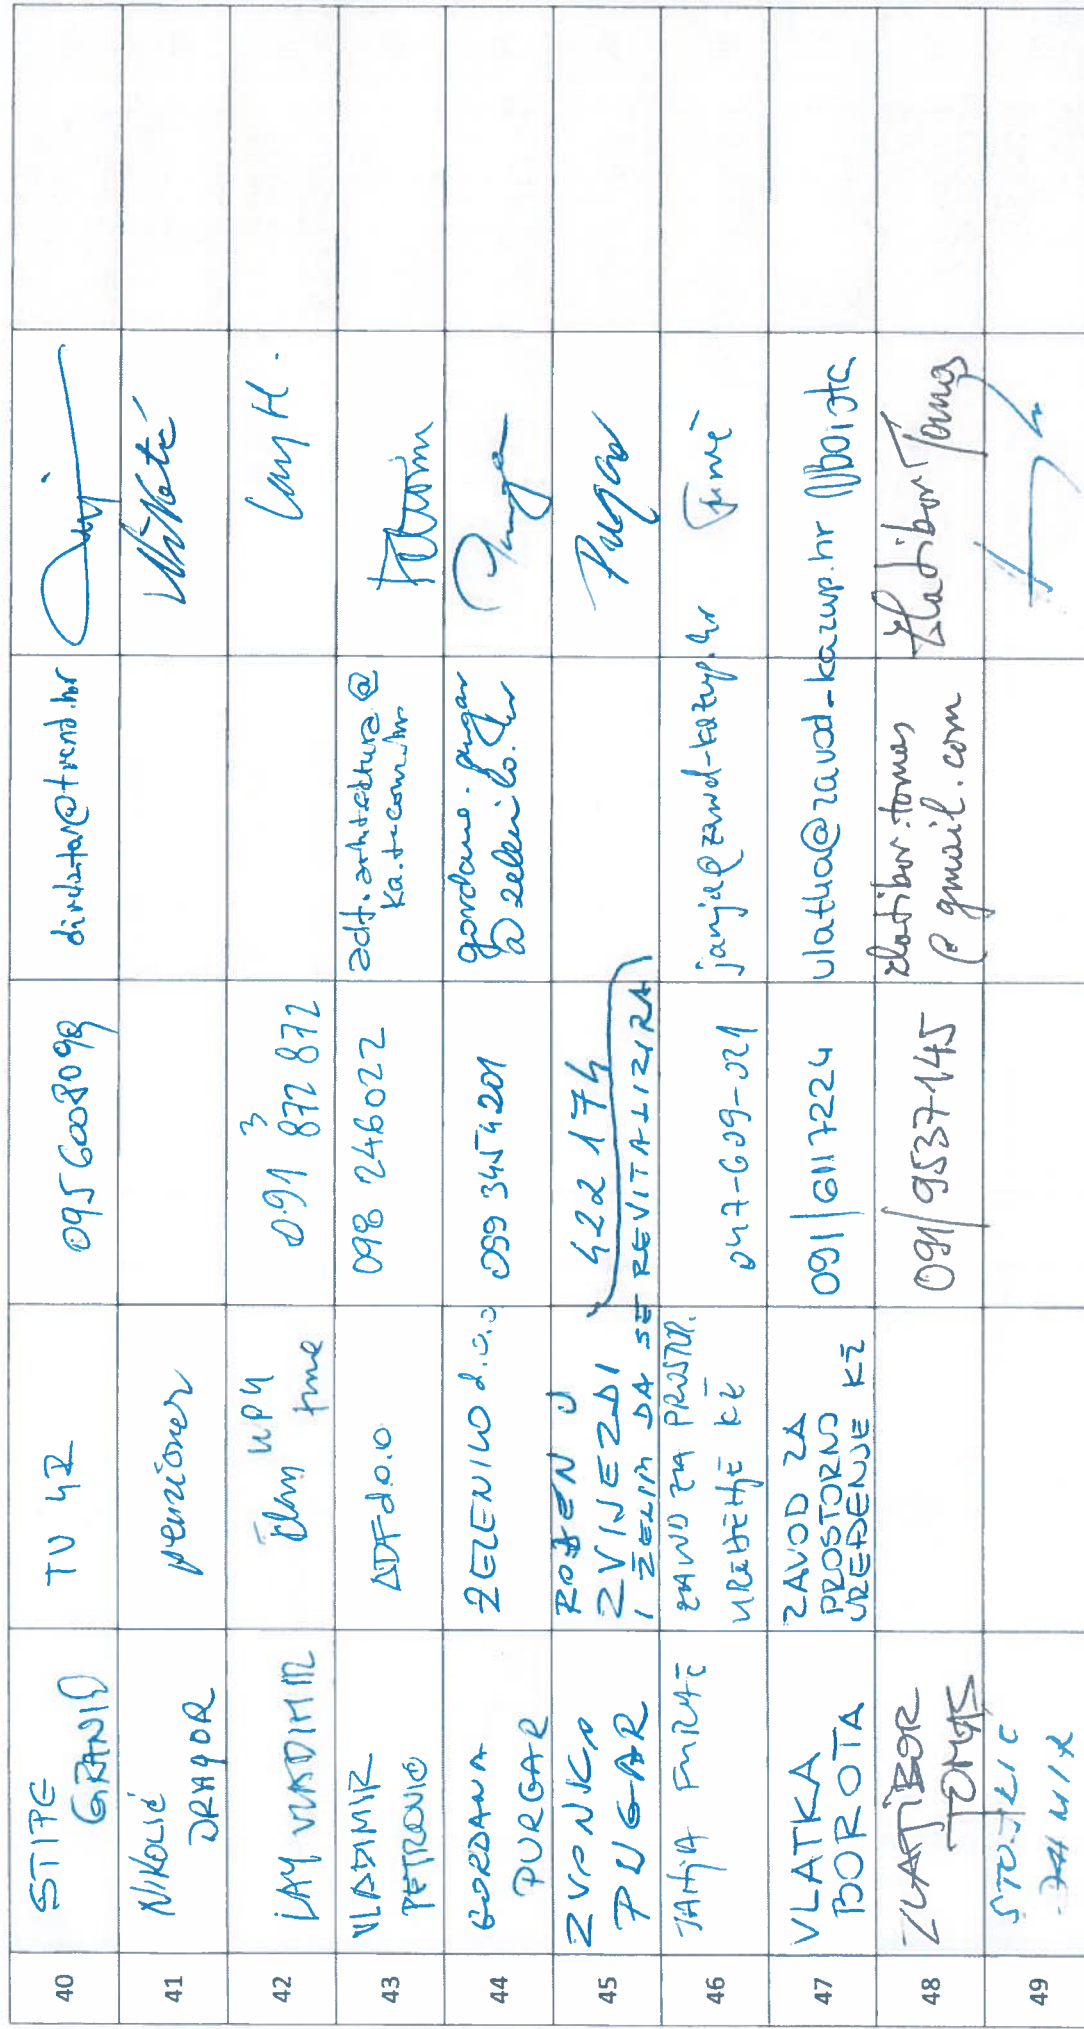 40 STIPE GRANIĆ TV 4R 0956008098 direktor@trend.hr
41 NIKOLIĆ DRAGOR penzioner
42 LAY VLADIMIR 091 872 872
43 VLADIMIR PETROVIĆ ADF d.o.o 098 246022 adf.arhitektura@
ka.t-com.hr
44 GORDANA PURGAR ZELENILO d.o.o 099 3454201 gordana.purgar
@zelenilo.hr
45 ZVONKO PUGAR ROĐEN U
ZVIJEZDI 422 174
I ŽELIM DA SE REVITALIZIRA
46 JANJA ZAVOD ZA PROSTOR.
UREĐENJE KŽ 047-609-021 janja@zavod-kazup.hr
47 VLATKA BOROTA ZAVOD ZA
PROSTORNO
UREĐENJE KŽ 091/6117224 vlatka@zavod-kazup.hr
48 ZLATIBOR TOMAS 091/9537145 zlatibor.tomas
@gmail.com Zlatibor Tomas
49